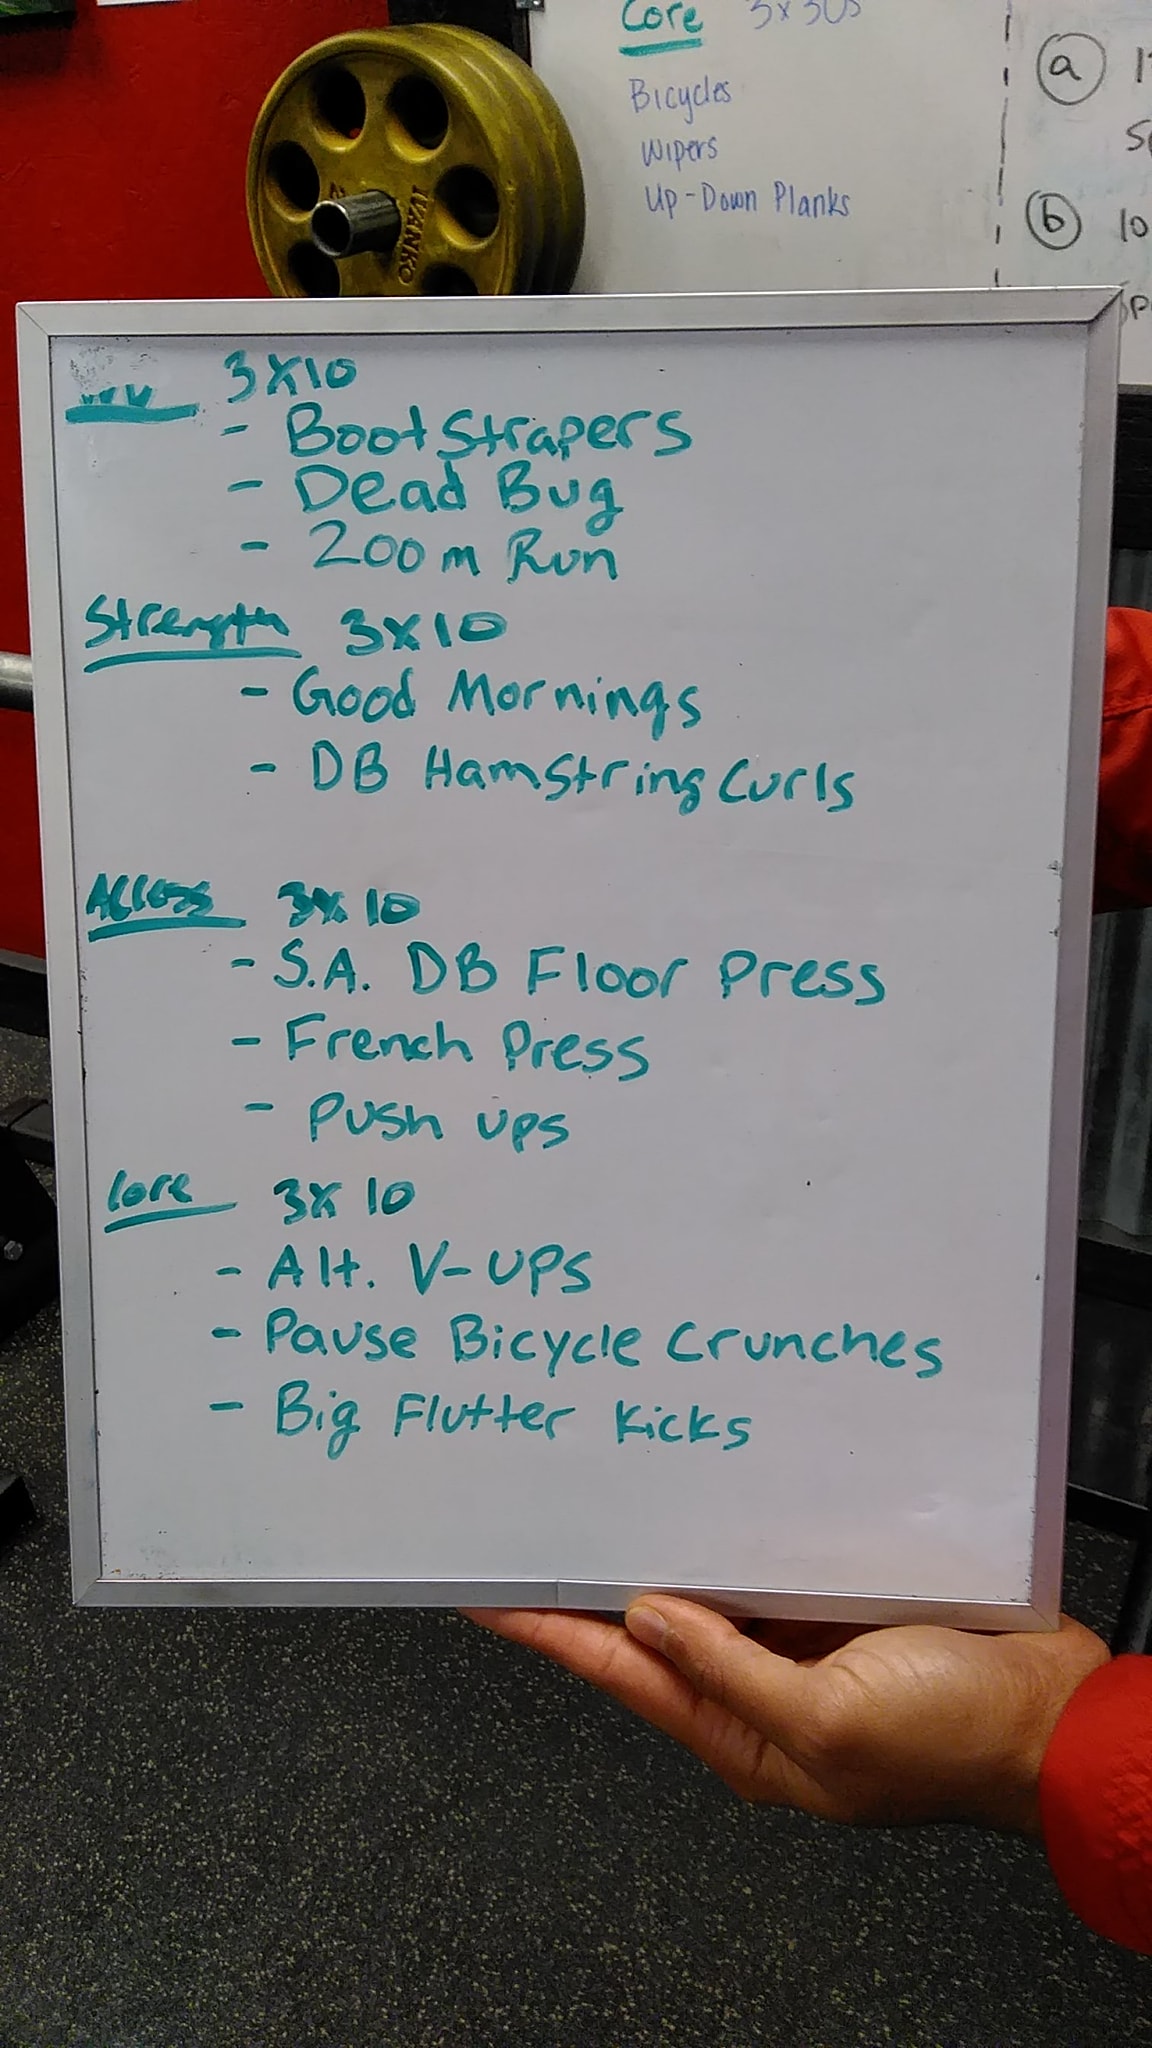 Core 3x30s
Bicycles
Wipers
Up-Down Planks
a
b 10
IVANKO
3x10
- Boot Strapers
- Dead Bug
- 200m Run
Strength 3x10
- Good Mornings
- DB Hamstring Curls
Access 3x10
- S.A. DB Floor Press
- French Press
- Push ups
Core 3x10
- Alt. V-ups
- Pause Bicycle Crunches
- Big Flutter Kicks